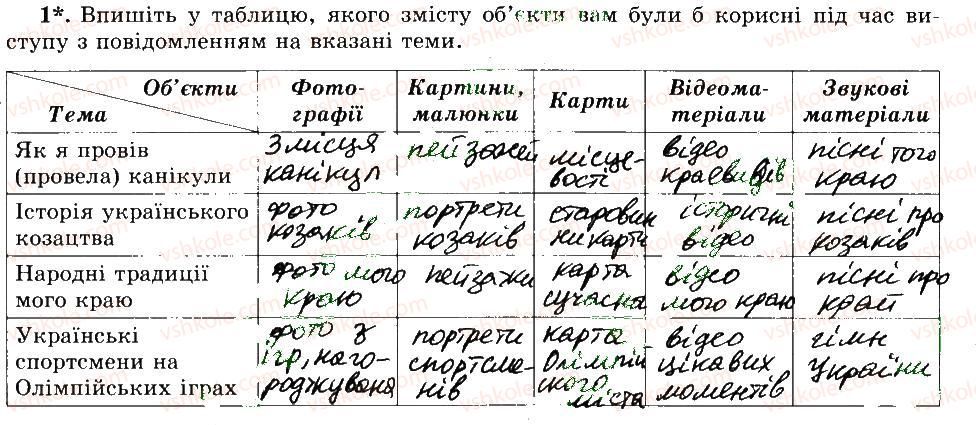 1*. Впишіть у таблицю, якого змісту об'єкти вам були б корисні під час ви-
ступу з повідомленням на вказані теми.
Об'єкти
Тема
Фото-
графії
Картини,
малюнки
Карти
Відеома-
теріали
Звукові
матеріали
Як я провів
(провела) канікули
З місця
канікул
пейзажей
місце-
вості
відео
краєвидів
пісні того
краю
Історія українського
козацтва
фото
козаків
портрети
козаків
старовин
ни карти
історичні
відео
пісні про
козаків
Народні традиції
мого краю
фото мого
краю
пейзажи
карта
сучасна
відео
мого краю
пісні про
край
Українські
спортсмени на
Олімпійських іграх
фото з
ігр, наго-
роджування
портрети
спортсме-
нів
карта
Олімпій
ского
міста
відео
цікавих
моментів
гімн
України